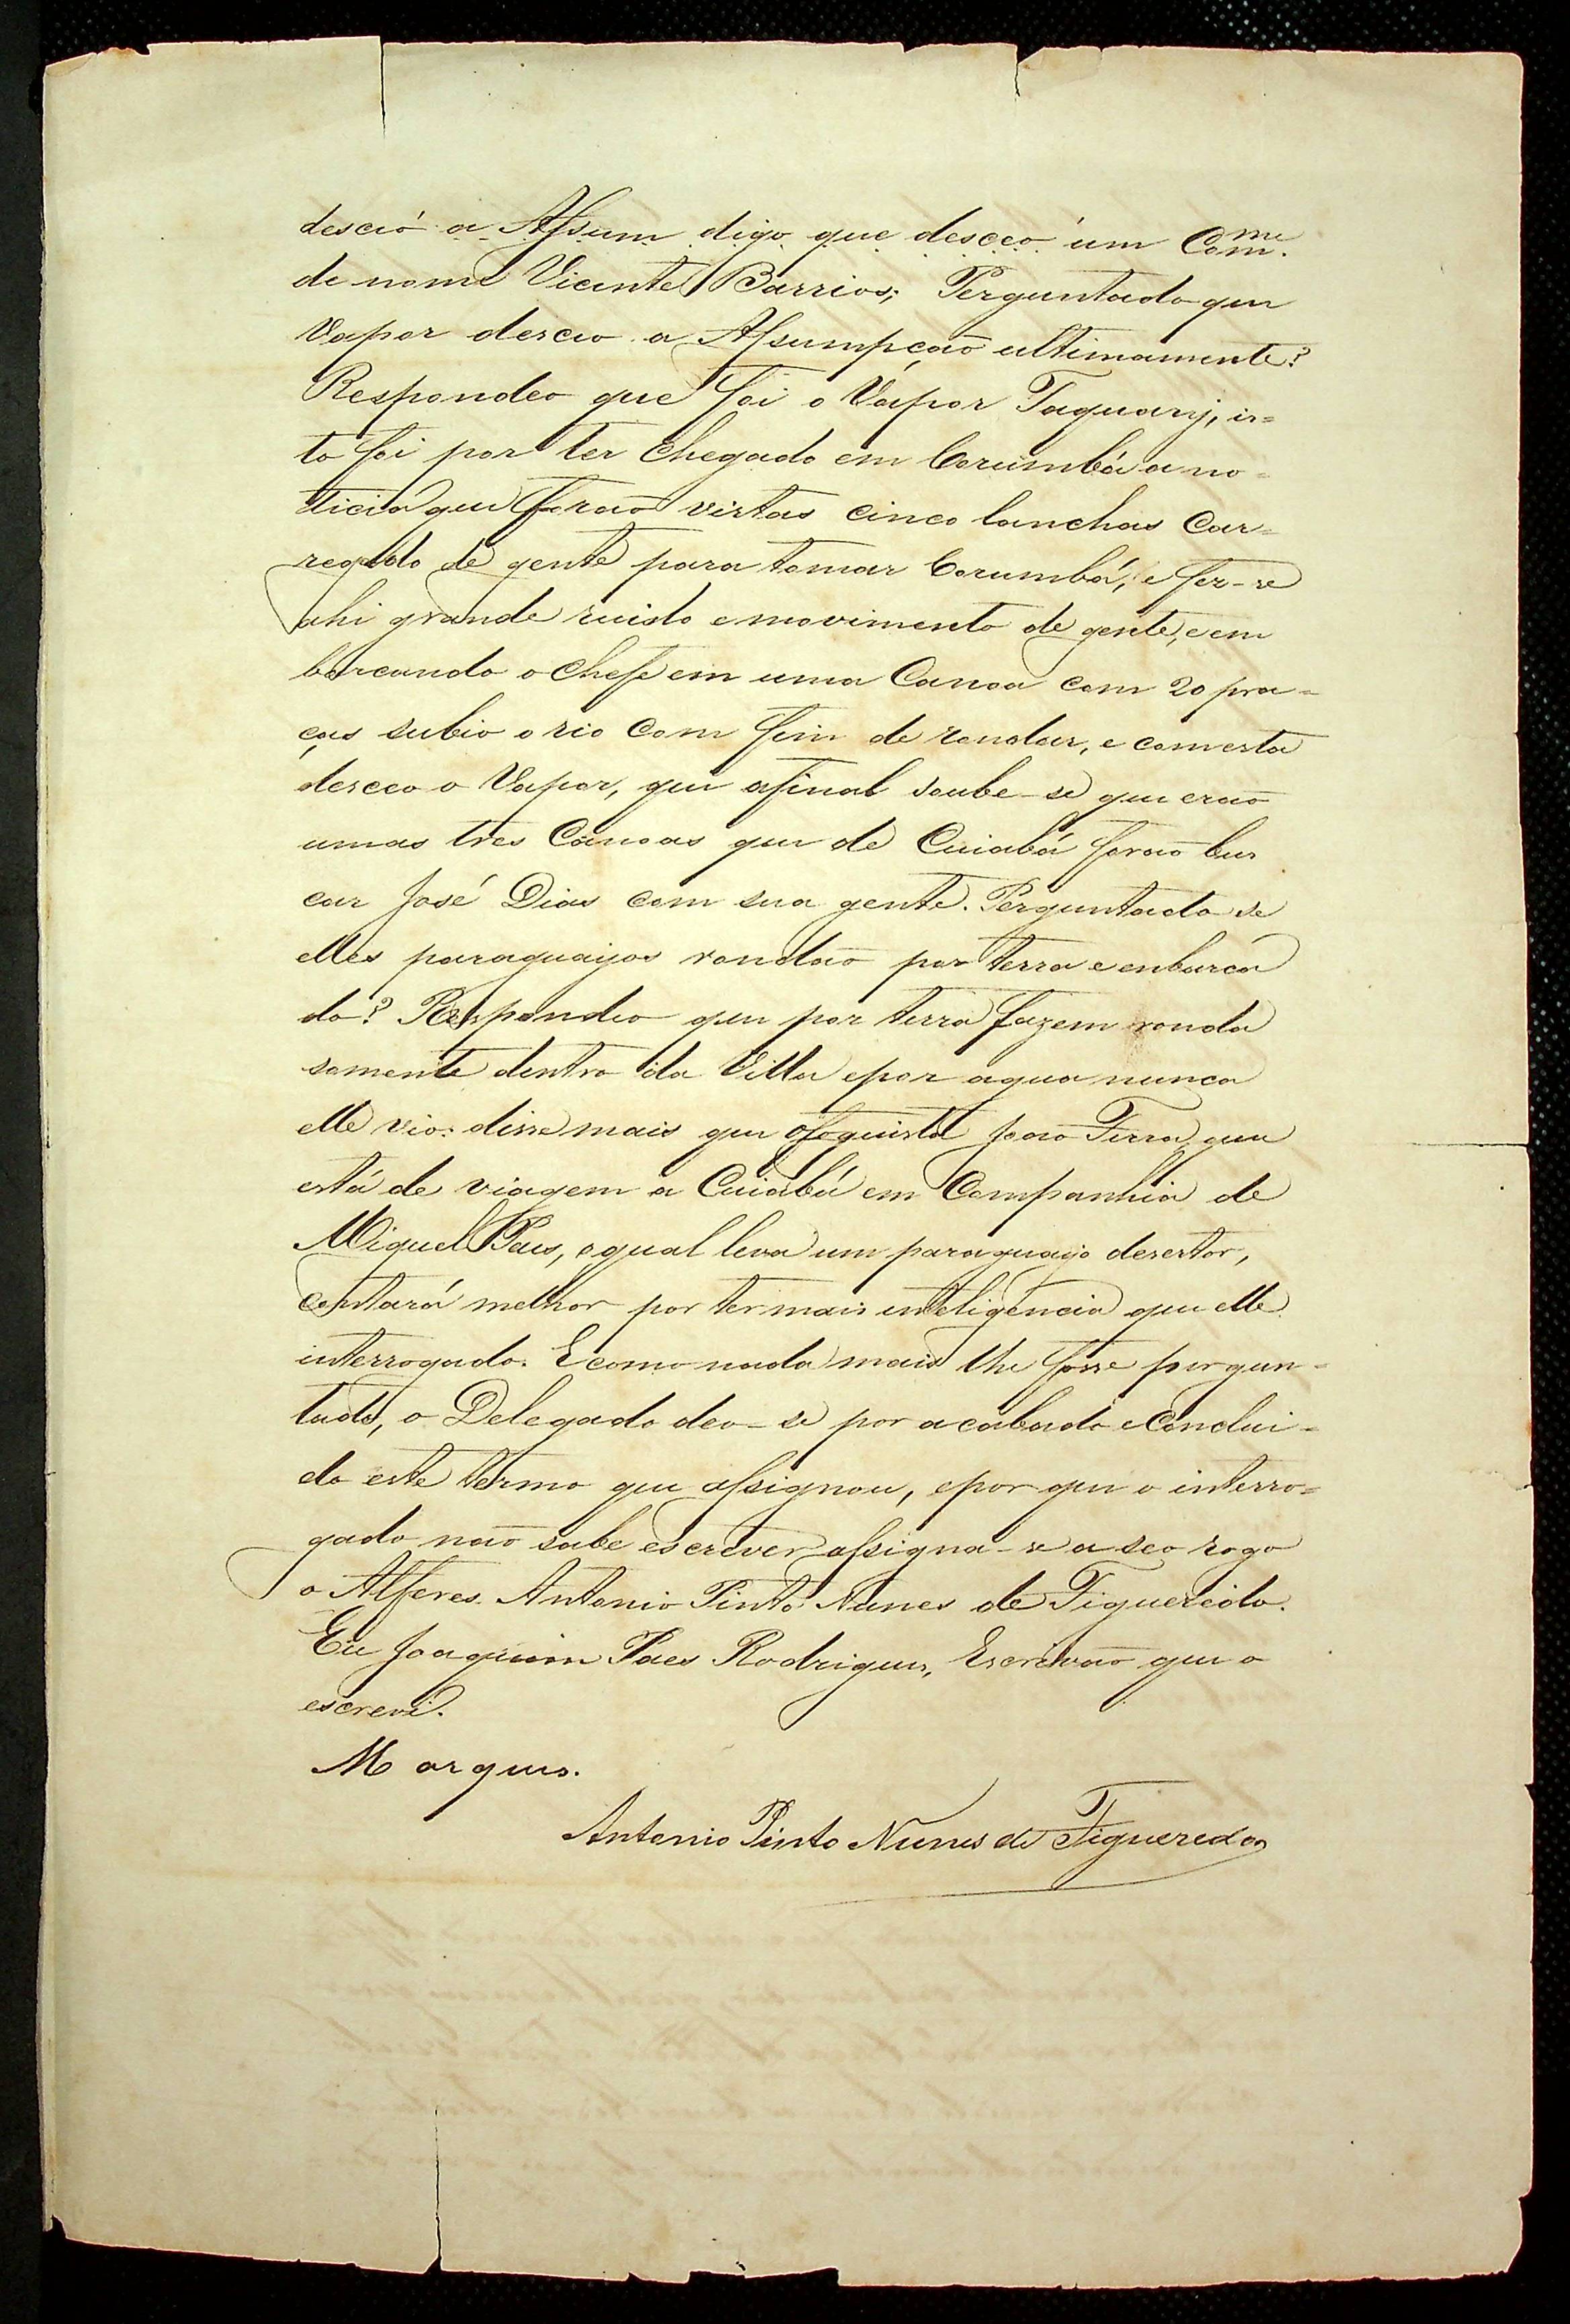 desceó a Assum digo que desceo um Com.me
de nome Vicente Barrios; Perguntado que
Vapor desceo a Assumpção ultimamente?
Respondeo que foi o Vapor Taquary, is=
to foi por ter chegado em Corumbá a no=
ticia que forão vistas cinco lanchas Car=
regado de gente para tomar Corumbá, e fez-se
ahi grande ruido e movimento de gente, e em
barcando o Chefe em uma Canoa com 20 pra=
ças subio o rio com fim de rondar, e com esta
desceo o Vapor, que afinal soube-se que erão
umas tres Canoas que de Cuiabá forão bus
car José Dias com sua gente. Perguntado se
elles paraguayos rondão por terra e enbarca
do? Respondeo que por terra fazem ronda
somente dentro da Villa e por agua nunca
elle vio: disse mais que o foguista João Terra, que
está de viagem a Cuiabá em Companhia de
Miguel Paes, o qual leva um paraguayo desertor,
contará melhor por ter mais inteligencia que elle
interrogado. E como nada mais lhe fosse pergun=
tado, o Delegado deo-se por acabado e Conclui=
do este termo que assignou, e por que o interro=
gado não sabe escrever assigna-se a seo rogo
o Alferes Antonio Pinto Nunes de Figueredo.
Eu Joaquim Paes Rodrigues, Escrivão que o
escrevi.
Marques.
Antonio Pinto Nunes de Figueredo